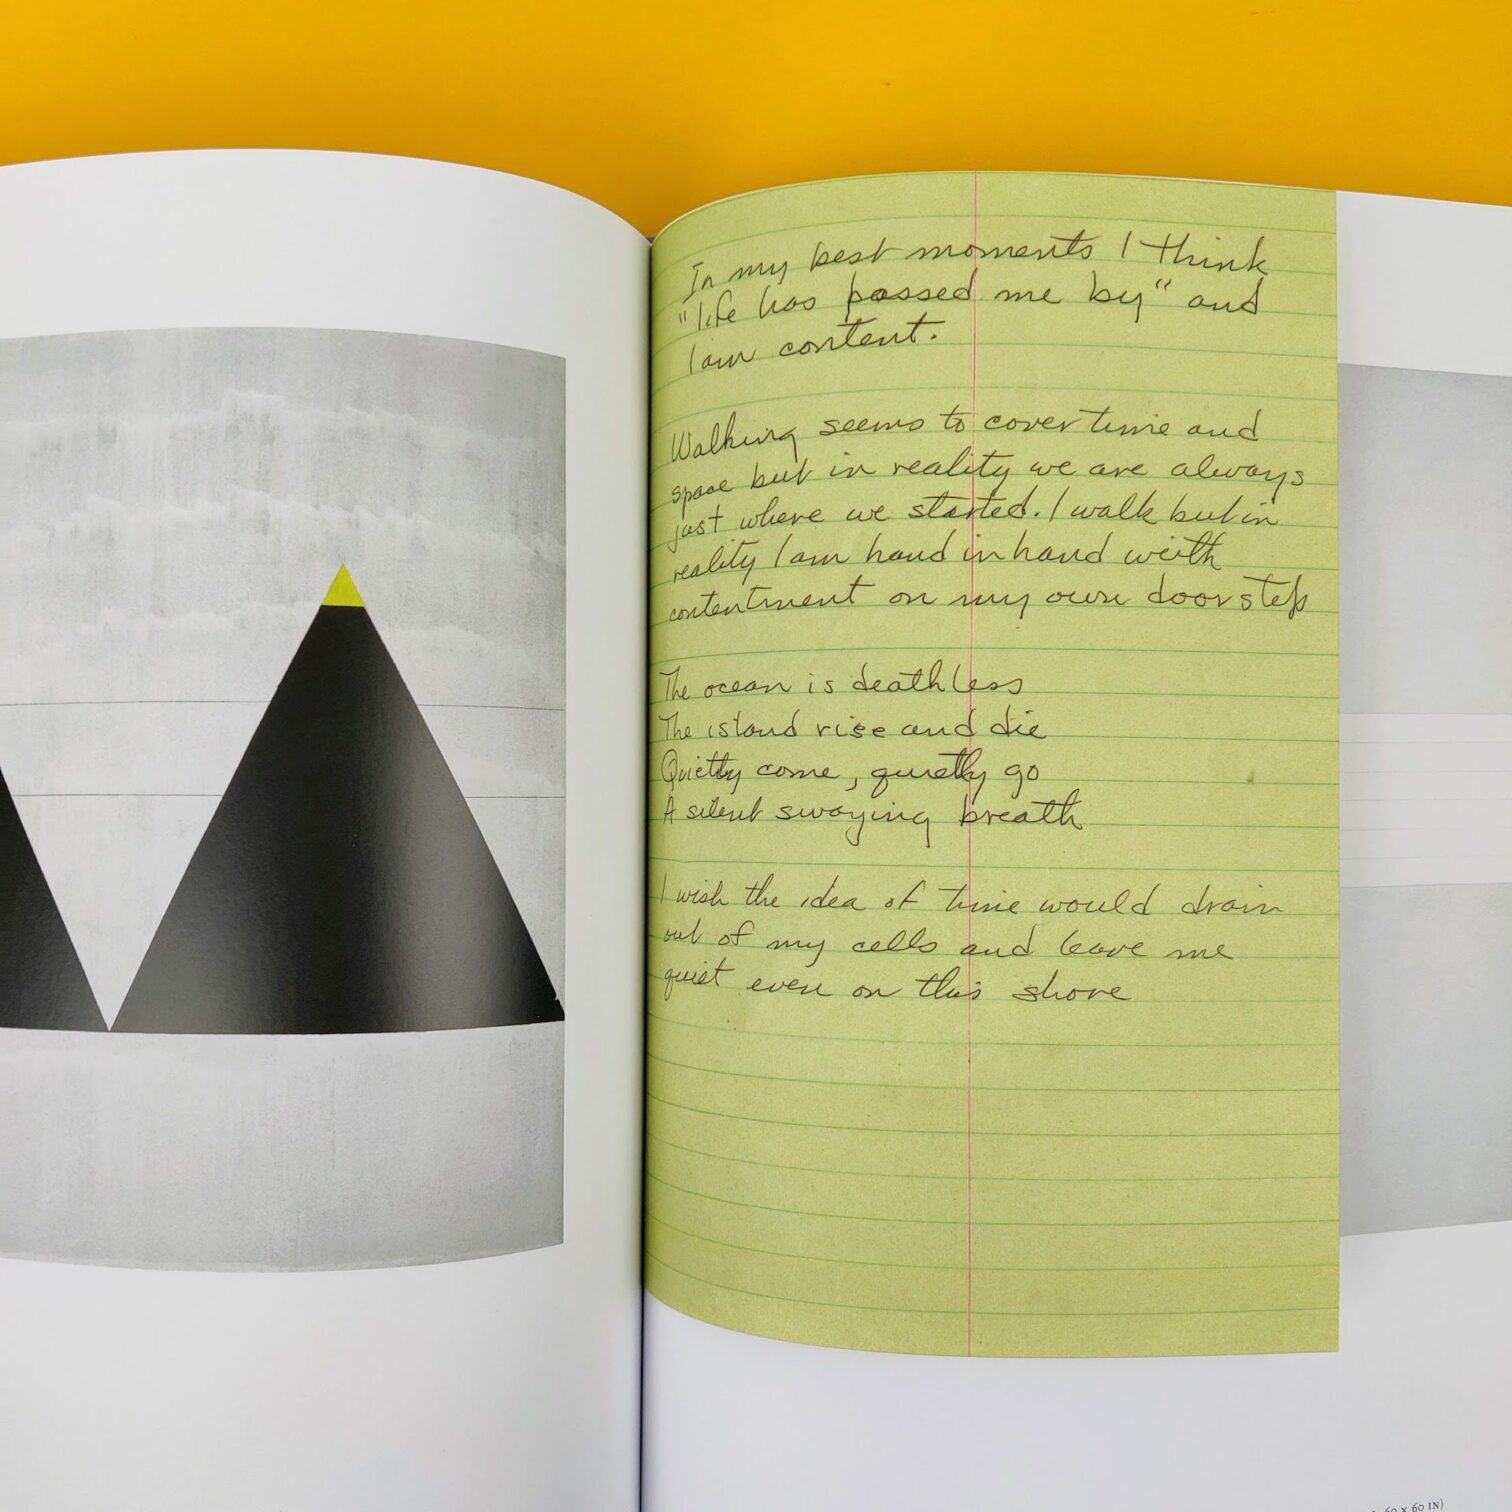 In my best moments I think
"life has passed me by" and
I am content.
Walking seems to cover time and
space but in reality we are always
just where we started. I walk but in
reality I am hand in hand with
contentment on my own door step
The ocean is deathless
The island rise and die
Quietly come, quietly go
A silent swaying breath
I wish the idea of time would drain
out of my cells and leave me
quiet even on this shore
60 x 60 IN)